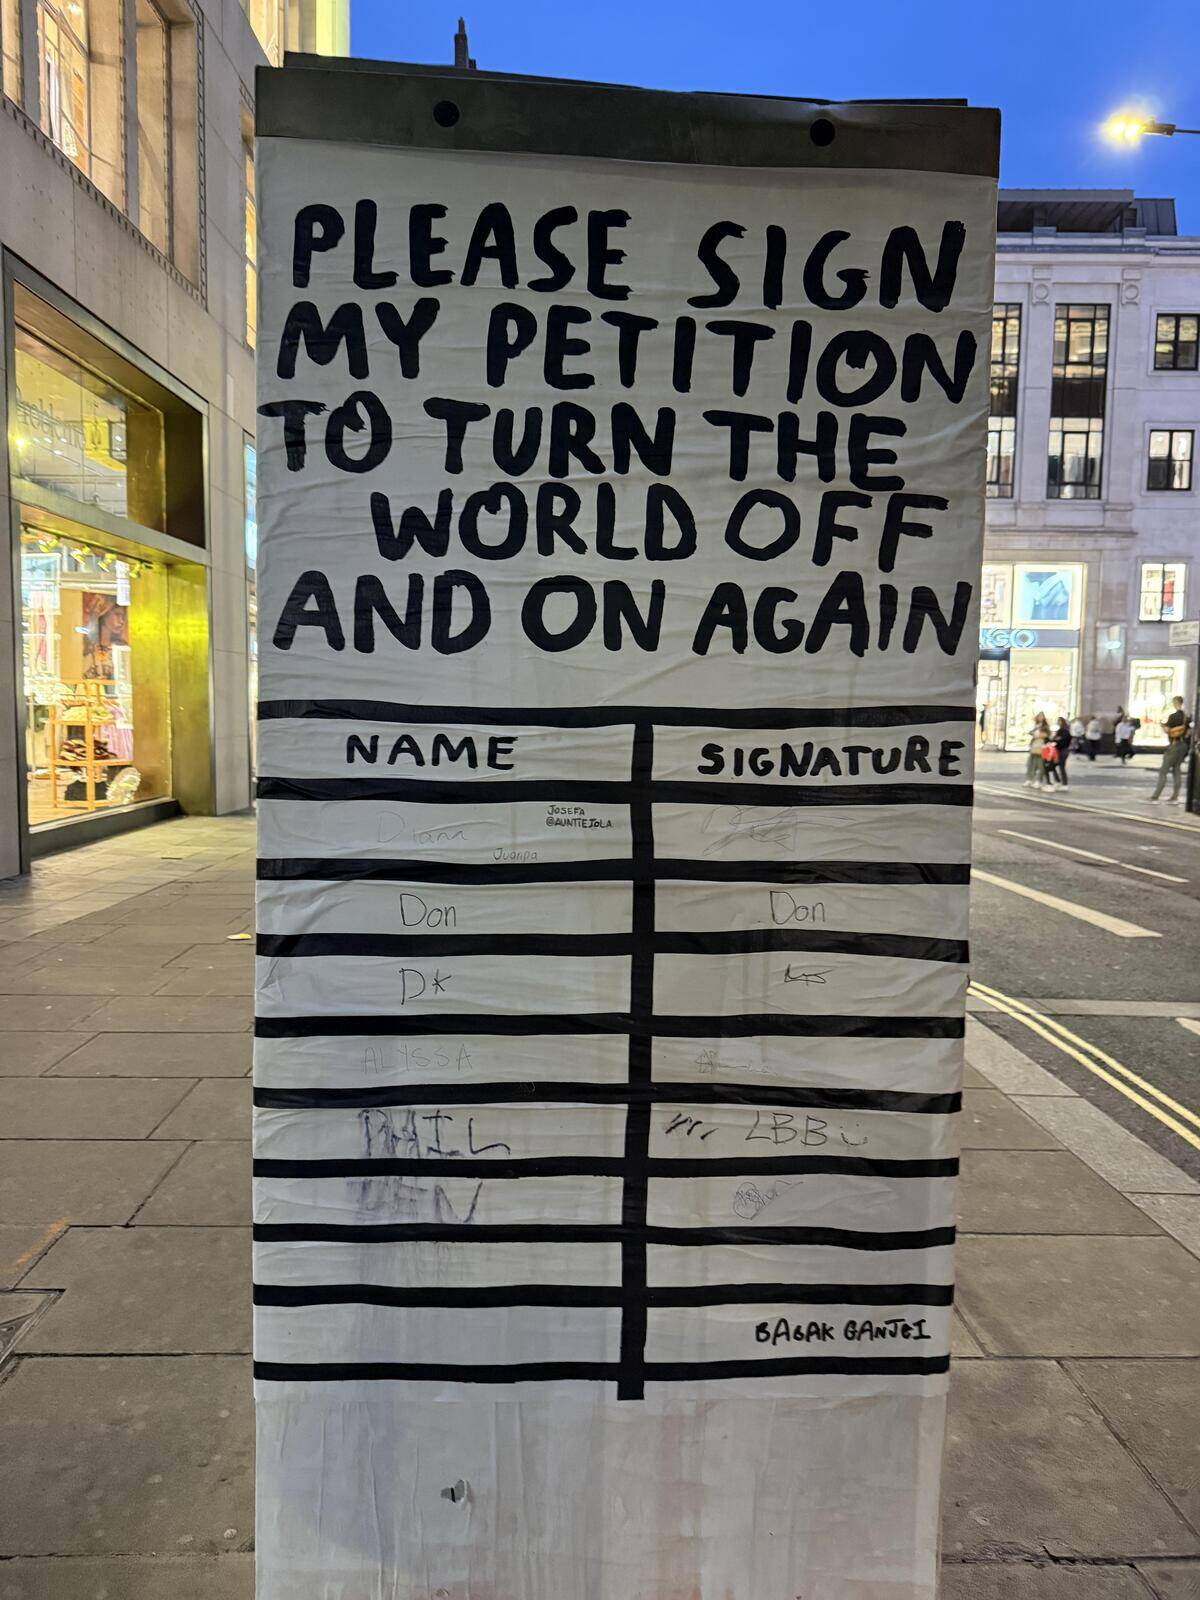 PLEASE SIGN
MY PETITION
TO TURN THE
WORLD OFF
AND ON AGAIN
NAME SIGNATURE
JOSEFA
@AUNTIEJOLA
Diann
Juanpa
Don Don
D*
ALYSSA
PHIL LBB
BABAK GANJEI